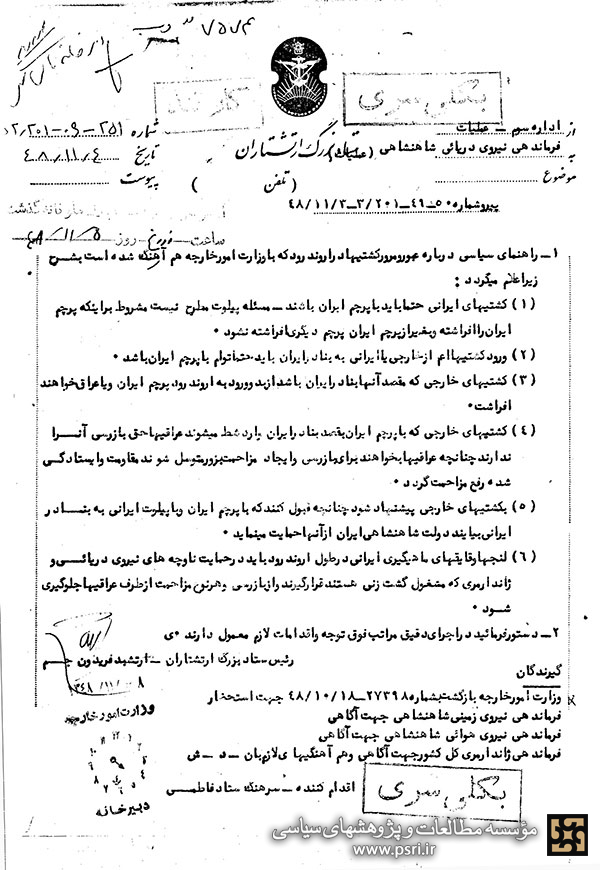 ۷۵۷۴
بکلی سری
از اداره سوم ــ عملیات
شماره ۲۵۱ــ۰۹ــ۲/۲۰۱
به فرماندهی نیروی دریائی شاهنشاهی (عملیات) بزرگ ارتشتاران
تاریخ ۴۸/۱۱/۴
موضوع
( تلفن )
پیوست
پیرو شماره ۵۰ــ۴۶ــ۳/۲۰۱ــ۴۸/۱۱/۳
ساعت روز ۴۸/۱۱/۵
۱ــ راهنمای سیاسی درباره عبور و مرور کشتیها در اروند رود که با وزارت امورخارجه هم آهنگ شده است بشرح
زیر اعلام میگردد :
(۱) کشتیهای ایرانی حتما باید با پرچم ایران باشند ــ مسئله پیلوت مطرح نیست مشروط براینکه پرچم
ایران را افراشته و بغیر از پرچم ایران پرچم دیگری افراشته نشود ۰
(۲) ورود کشتیها اعم از خارجی یا ایرانی به بنادر ایران باید حتما توام با پرچم ایران باشد ۰
(۳) کشتیهای خارجی که مقصد آنها بنادر ایران باشد از بدو ورود به اروند رود پرچم ایران و یا عراق خواهند
افراشت۰
(۴) کشتیهای خارجی که با پرچم ایران بقصد بنادر ایران وارد شط میشوند عراقیها حق بازرسی آنرا
ندارند چنانچه عراقیها بخواهند برای بازرسی و ایجاد مزاحمت بزور متوسل شوند مقاومت و ایستادگی
شده رفع مزاحمت گردد ۰
(۵) بکشتیهای خارجی پیشنهاد شود چنانچه قبول کنند که با پرچم ایران و با پیلوت ایرانی به بنادر
ایرانی بیایند دولت شاهنشاهی ایران از آنها حمایت مینماید ۰
(۶) لنجها و قایقهای ماهیگیری ایرانی در طول اروند رود باید در حمایت ناوچه های نیروی دریائی و
ژاندارمری که مشغول گشت زنی هستند قرار گیرند و از بازرسی و هر نوع مزاحمت از طرف عراقیها جلوگیری
شود ۰
۲ــ دستور فرمائید در اجرای دقیق مراتب فوق توجه و اقدامات لازم معمول دارند ۰ی
رئیس ستاد بزرگ ارتشتاران ــ ارتشبد فریدون جم
۱۳۴۸/۱۱/۰۸
گیرندگان
وزارت امورخارجه بازگشت بشماره ۲۷۳۹۸ــ۴۸/۱۰/۱۸ جهت استحضار
فرماندهی نیروی زمینی شاهنشاهی جهت آگاهی
فرماندهی نیروی هوائی شاهنشاهی جهت آگاهی
فرماندهی ژاندارمری کل کشور جهت آگاهی و هم آهنگیهای لازم بان ــ د ــ ش
وزارت امور خارجه
دبیرخانه
اقدام کننده ــ سرهنگ ستاد فاطمی
بکلی سری
مؤسسه مطالعات و پژوهشهای سیاسی
www.psri.ir